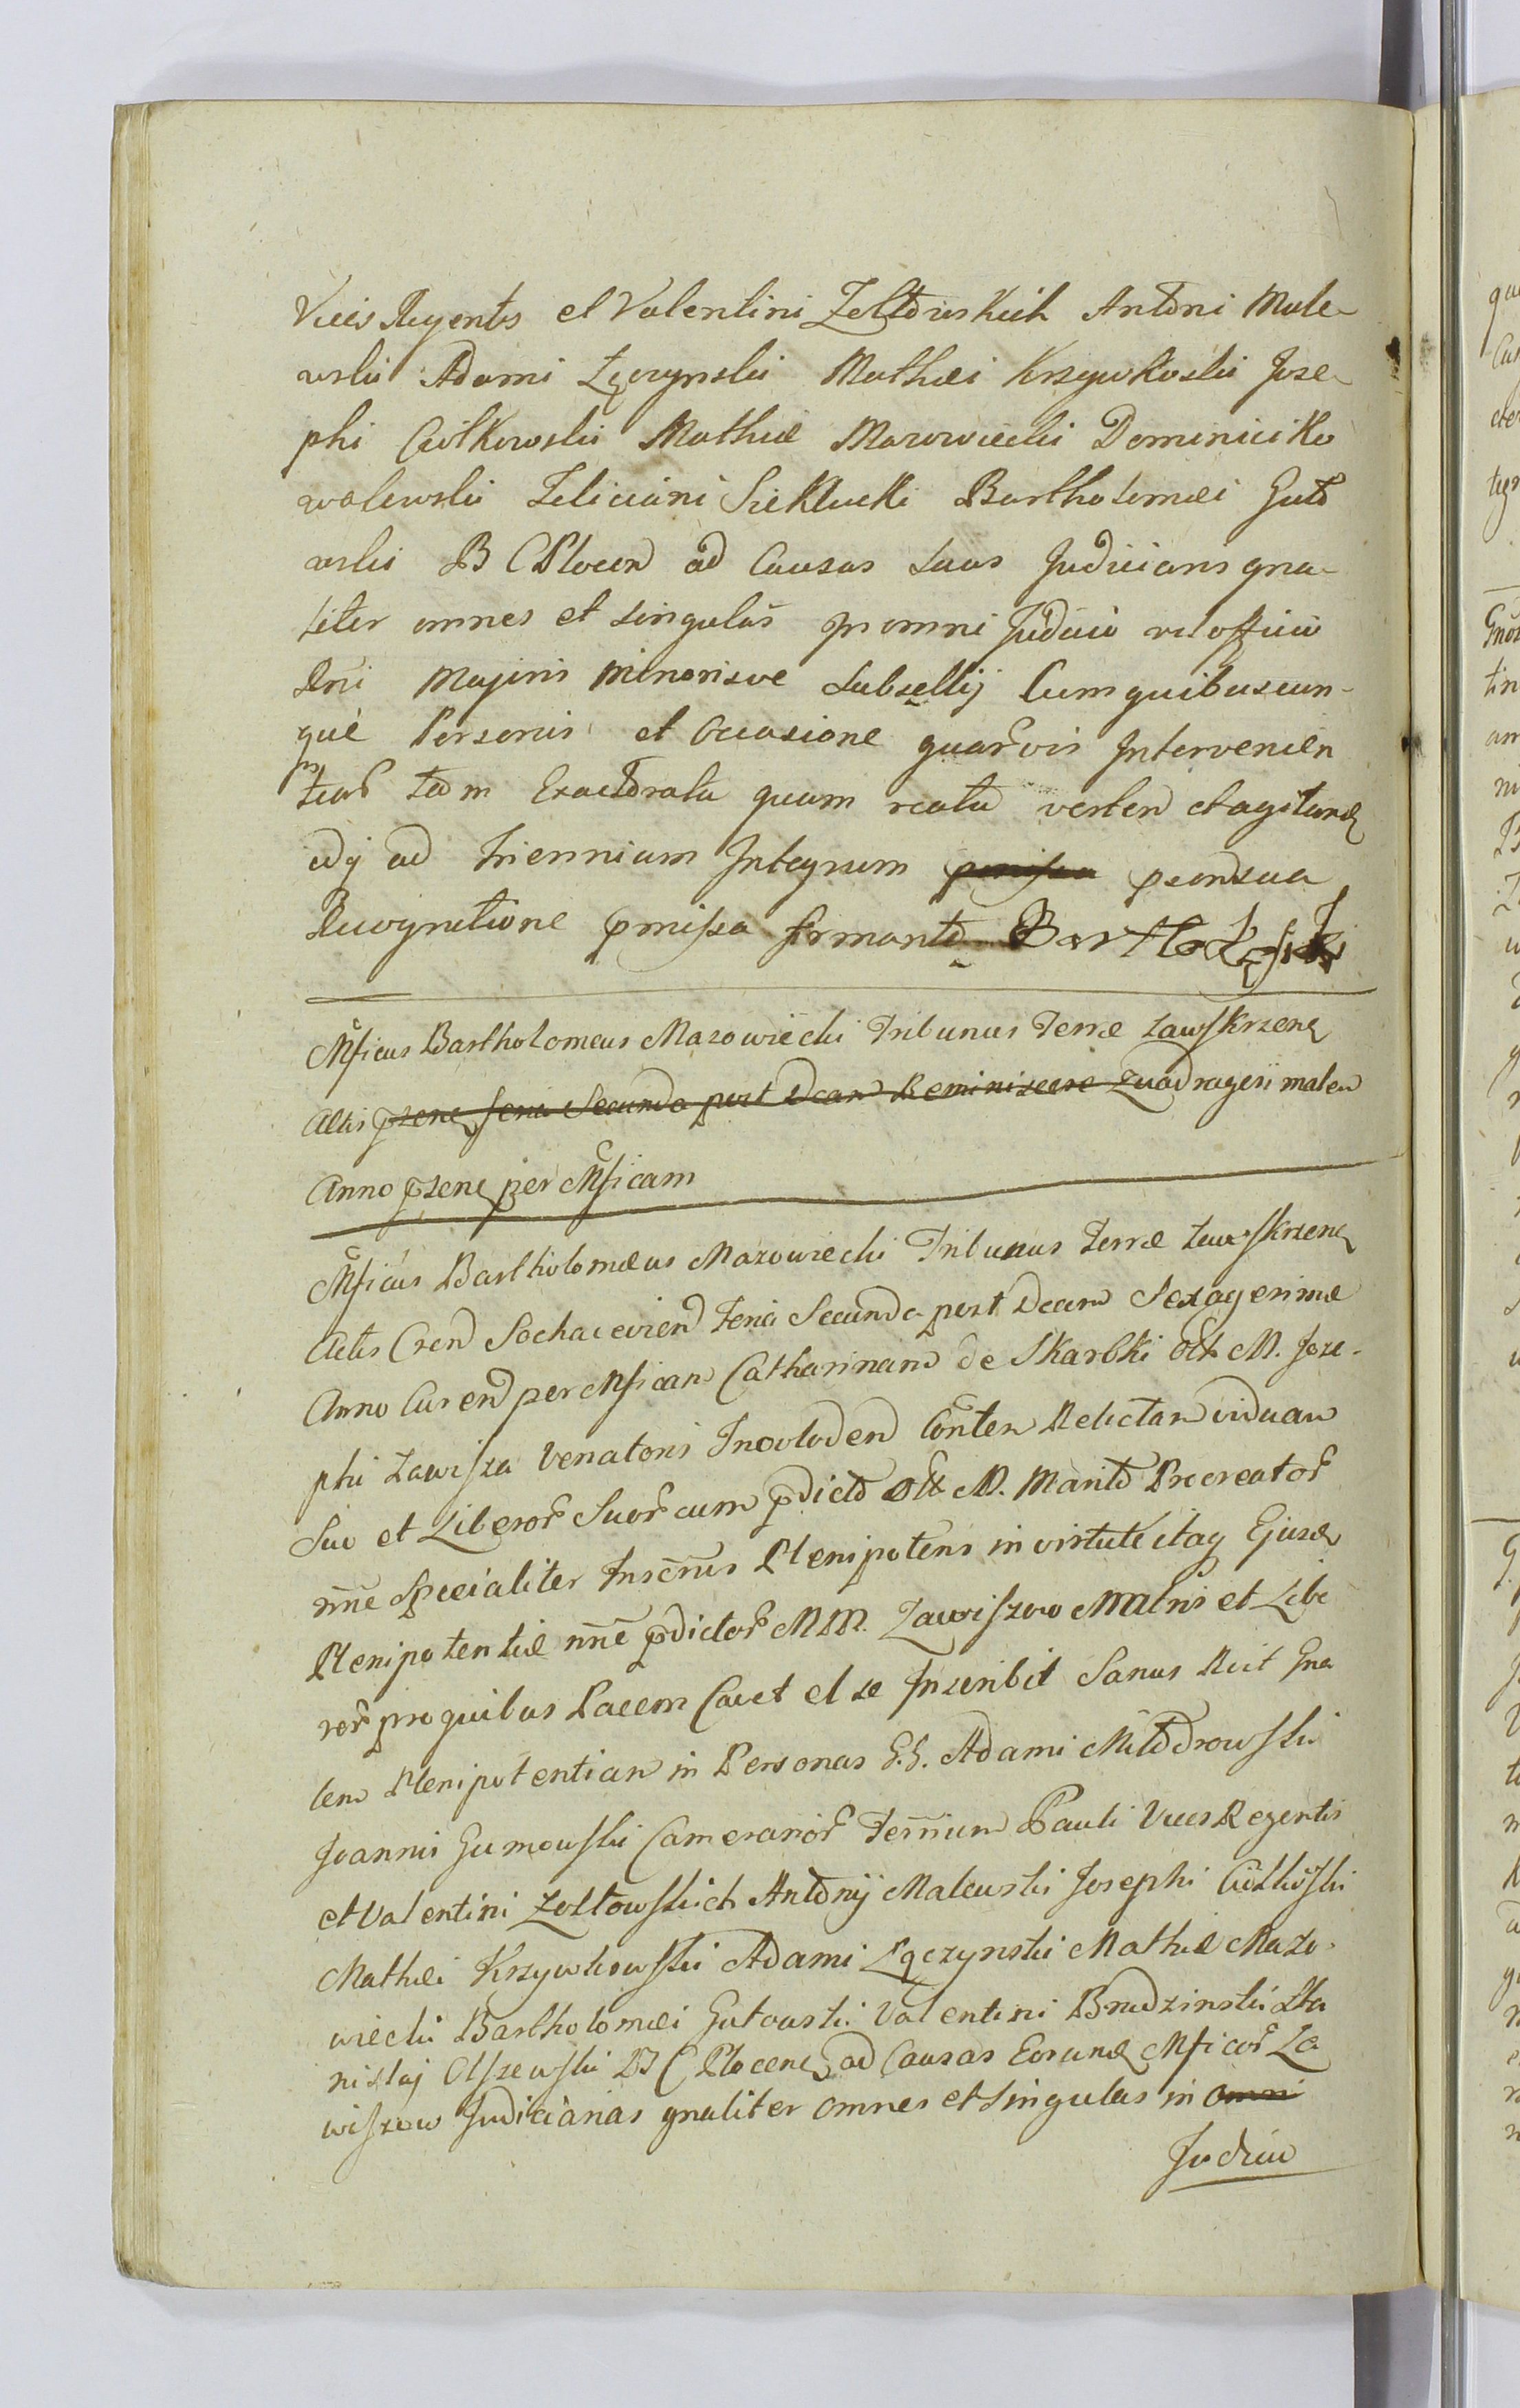 Vices Regentis et Valentini Zołtowskich Antoni Male-
wski Adami Łączynski Mathæi Krzywkoski Jose-
phi Ciółkowski Mathiæ Mazowiecki Dominici Ko
walewski Feliciani Siekłucki Bartholomæi Guto
wski B C Plocen ad Causas Suas Judiciaris gna-
liter omnes et singulas in omni Judicio vel officio
Rni Majoris Minorisve Subsellij Cum quibuscun-
que Personis et Occasione quarvis Intervenien
tiar tam Exactoratu quam reatu verten et agitand
idq ad Triennium Integrum præsen sua
Recognitione pmissa firmanto Barth
Mficus Bartholomeus Mazowiecki Tribunus Terræ Zawskrzen
Actis pzen feria Secunda post Dcam Reminiscere Quadragesimalem
Anno pzen per Mficam
Mficus Bartholomæus Mazowiecki Tribunus Terræ Zawskrzen
Actis Cren Sochacevien Feria Secunda post Dcam Sexagesimæ
Anno Curen per Mficam Catharinam de Skarbki olt M. Jose-
phi Zawisza Venatoris Inowloden Conten Relictam viduam
Suo et Liberor Suor cum pdicto olt M. Marito Procreator
nne Specialiter Inscrius Plenipotens in virtute itaq Ejusd
Plenipotentiæ nne pdictor MM. Zawiszow Matris et Libe
ror pro quibus Pacem Cavet et se Inscribit Sanus Recit Gna
lem Plenipotentiam in Personas G.G. Adami Miłodrowski
Joannis Gumowski Camerarior Terrium Pauli Vices Regentis
et Valentini Zołtowskich Antonij Malewski Josephi Ciołkowski
Mathæi Krzywkowski Adami Łączynski Mathiæ Mazo-
wiecki Bartholomæi Gutowski Valentini Brudzinski Sta
nislaj Olszewski B C Plocen ad Causas Eorund Mficor Za
wiszow Judiciarias gnaliter omnes et Singulas in omni
Judicio